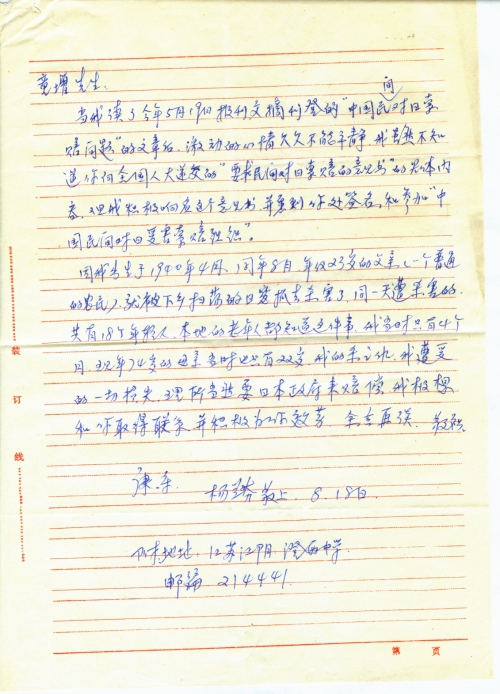 童增先生:
当我读了今年5月19日报刊文摘刊登的"中国民间对日索
赔问题"的文章后,激动的心情久久不能平静,我虽然不知
道你向全国人大递交的"要求民间对日索赔的意见书"的具体内
容,但我积极响应这个意见书,并要到你处签名,和参加"中
国民间对日受害索赔组织"。
因我出生于1940年4月,同年8月年仅23岁的父亲(一个普通
的农民),就被下乡扫荡的日寇抓去杀害了,同一天遭杀害的
共有18个年轻人,本地的老年人都知道这件事,我当时只有4个
月,现年74岁的母亲当时也只有22岁,我的杀父仇,我遭受
的一切损失,理所当然要日本政府来赔偿,我极想
和你取得联系,并积极为工作效劳,余言再谈,
康乐
杨 敬上 8.18日
附地址:江苏江阴 澄西中学
邮编 214441
装
订
线
第 页